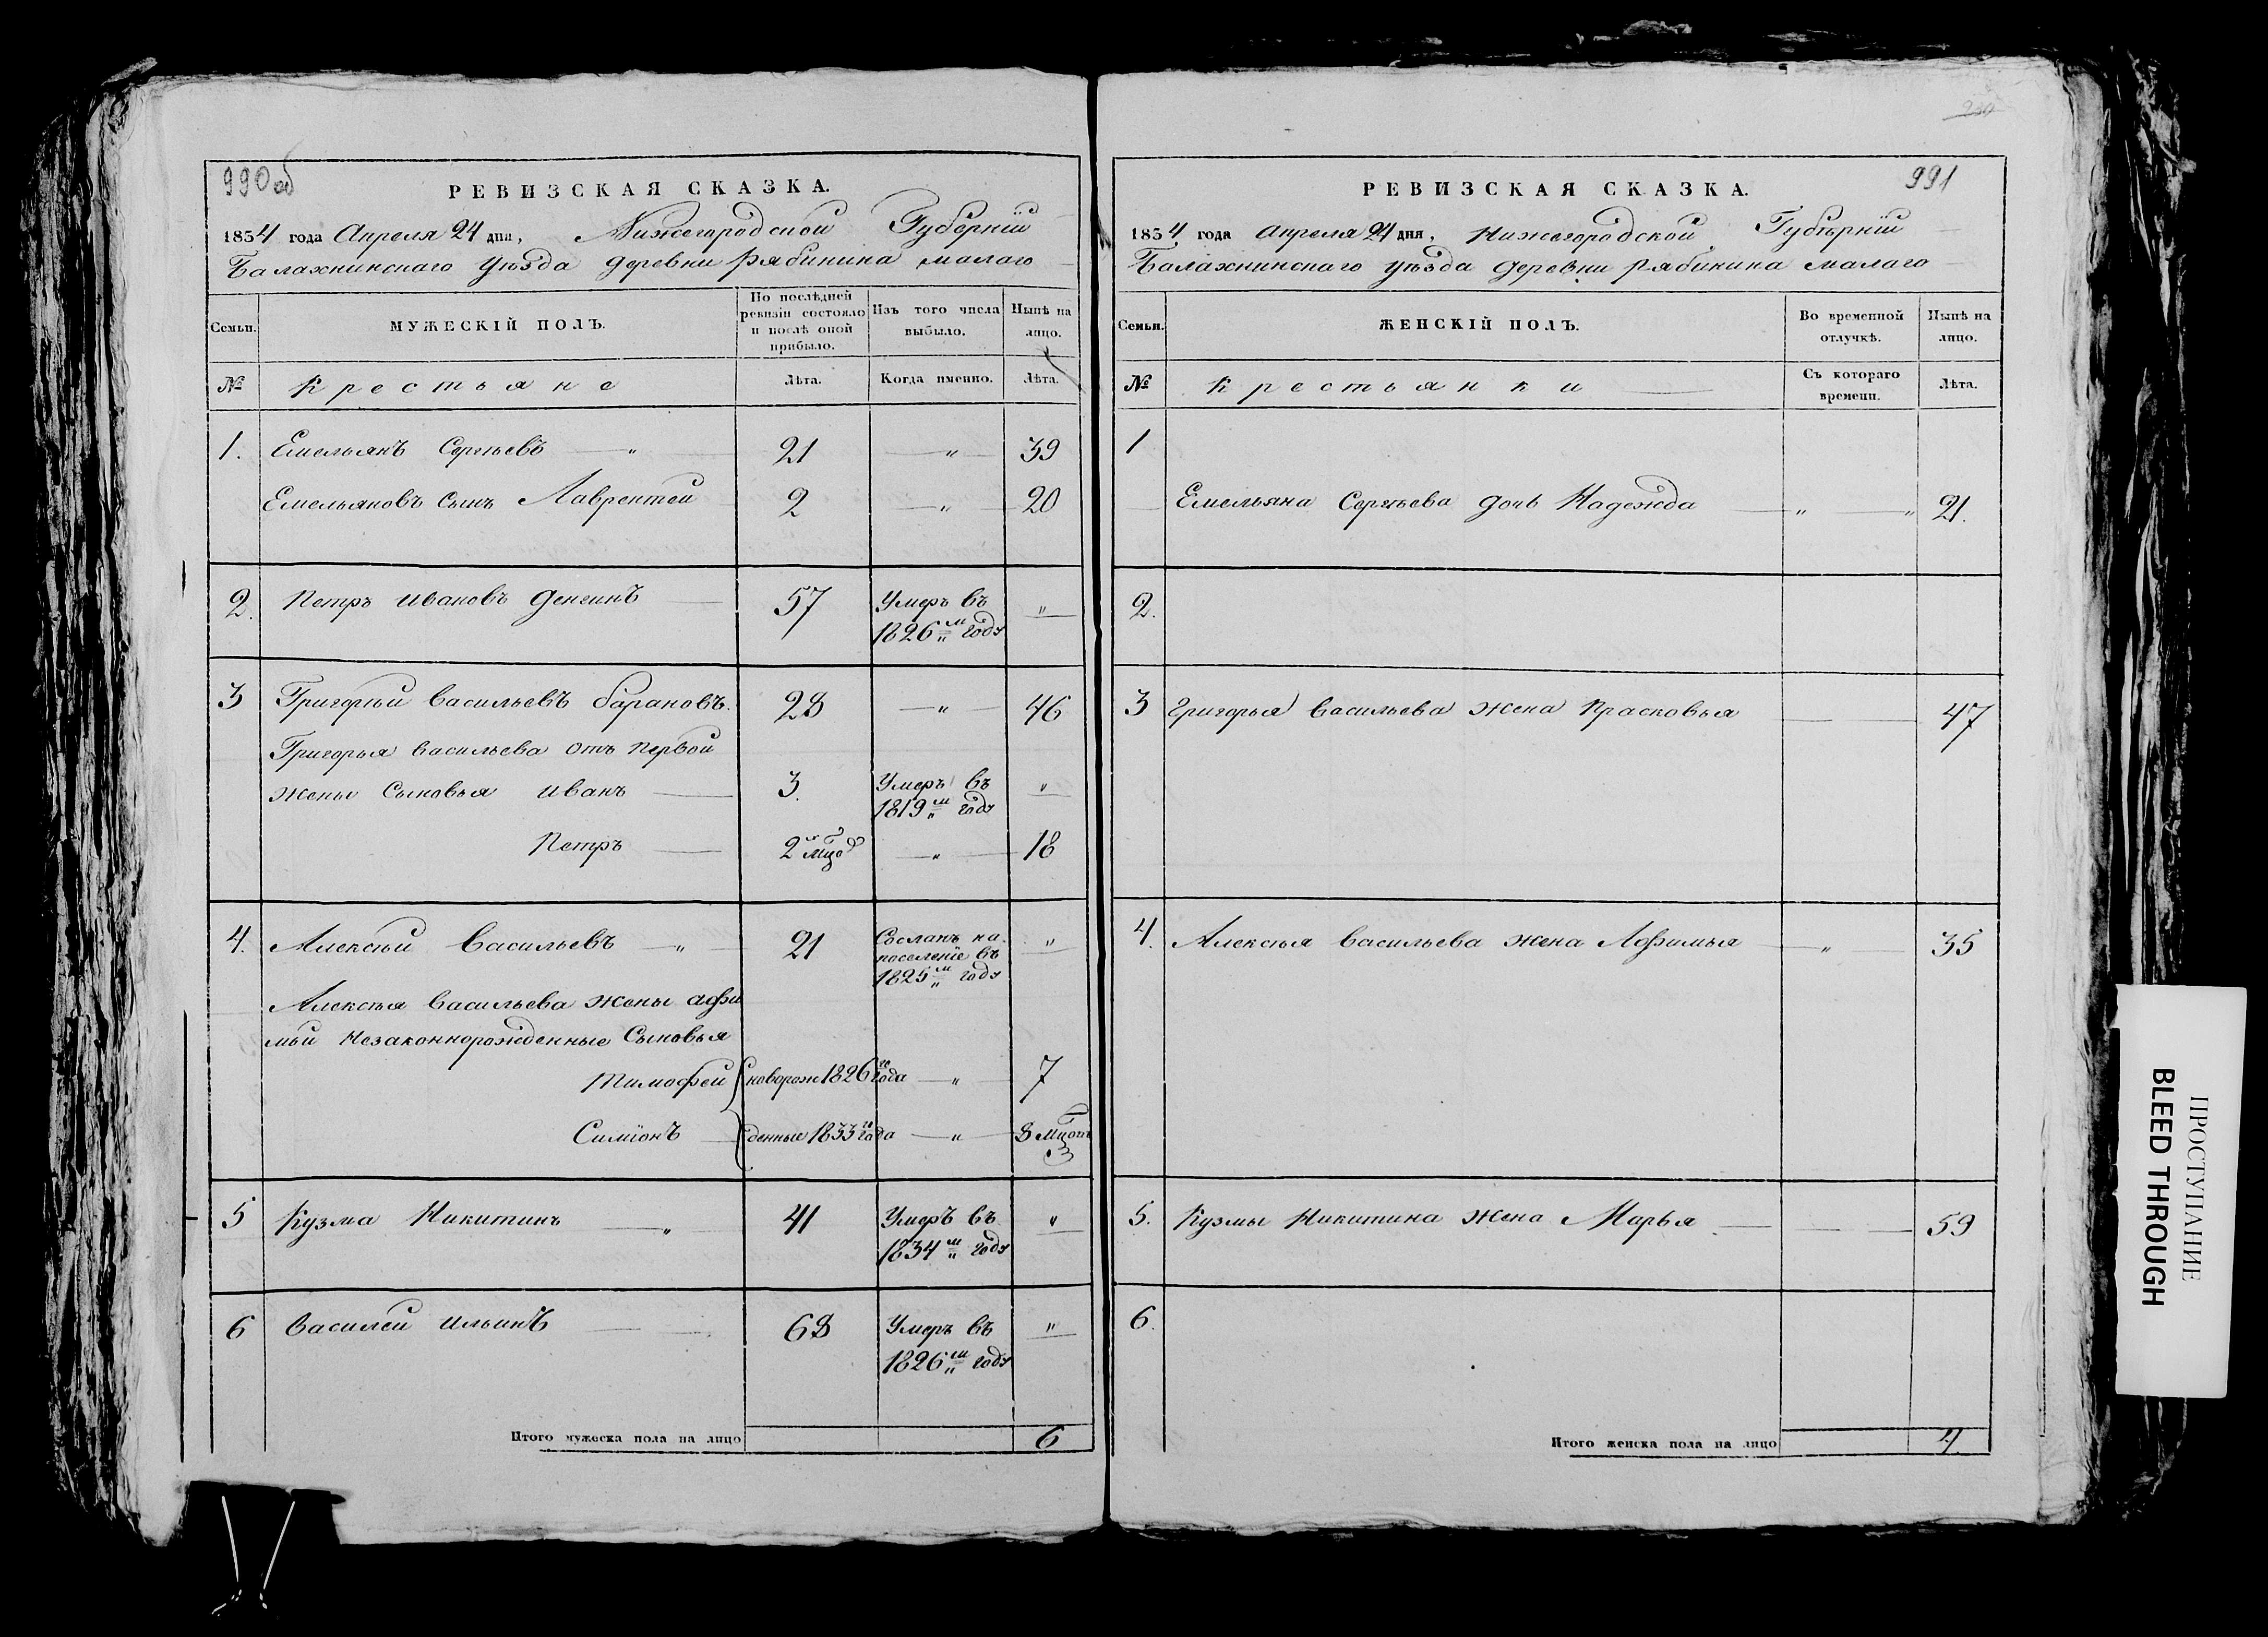 990 об
РЕВИЗСКАЯ СКАЗКА.
1834 года Апреля 24 дня, Нижегородской Губернїи
Балахнинскаго уѣзда деревни Рябинина малаго
Семьи.
МУЖЕСКІЙ ПОЛЪ.
По послѣдней ревизіи состояло и послѣ оной прибыло.
Изъ того числа выбыло.
Нынѣ на лицо.
№ Крестьяне Лѣта. Когда именно. Лѣта.
1. Емельянъ Сергѣевъ — " 21 — " — 39
Емельяновъ сынъ Лаврентей 2 — " — 20
2. Петръ Ивановъ 57 Умеръ въ "
1826 м годy
3 Григорѣй Васильевъ Барановъ. 28 — " — 46
Григорья Васильева отъ первой
жены Сыновья Иванъ 3. Умеръ въ "
1819 м годy
Петръ 2 мцовъ — " — 18
4. Алексѣй Васильевъ — " 21 Сосланъ на "
поселеніе въ
1825 м годy
Алексѣя Васильева жены Афи
мьи Незаконнорожденные Сыновья
Тимофей новорож 1826 го года — " — 7
Симїонъ денные 1833 го года — " — 8 мцовъ
5 Кузма Никитинъ " 41 Умеръ въ "
1834 м годy
6 Василей Ильинъ 68 Умеръ въ "
1826 м годy
Итого мужеска пола на лицо 6
991
РЕВИЗСКАЯ СКАЗКА.
1834 года Апреля 24 дня, Нижегородской Губернїи
Балахнинскаго уѣзда деревни Рябинина малаго
Семьи.
ЖЕНСКІЙ ПОЛЪ.
Во временной отлучкѣ.
Нынѣ на лицо.
№ Крестьянки Съ котораго времени. Лѣта.
1
Емельяна Сергѣева дочь Надежда " " 21.
2.
3 Григорья Васильева жена Прасковья 47
4. Алексѣя Васильева жена Афимья " 35
5. Кузмы Никитина жена Марья 59
6.
Итого женска пола на лицо 4
ПРОСТУПАНИЕ
BLEED THROUGH